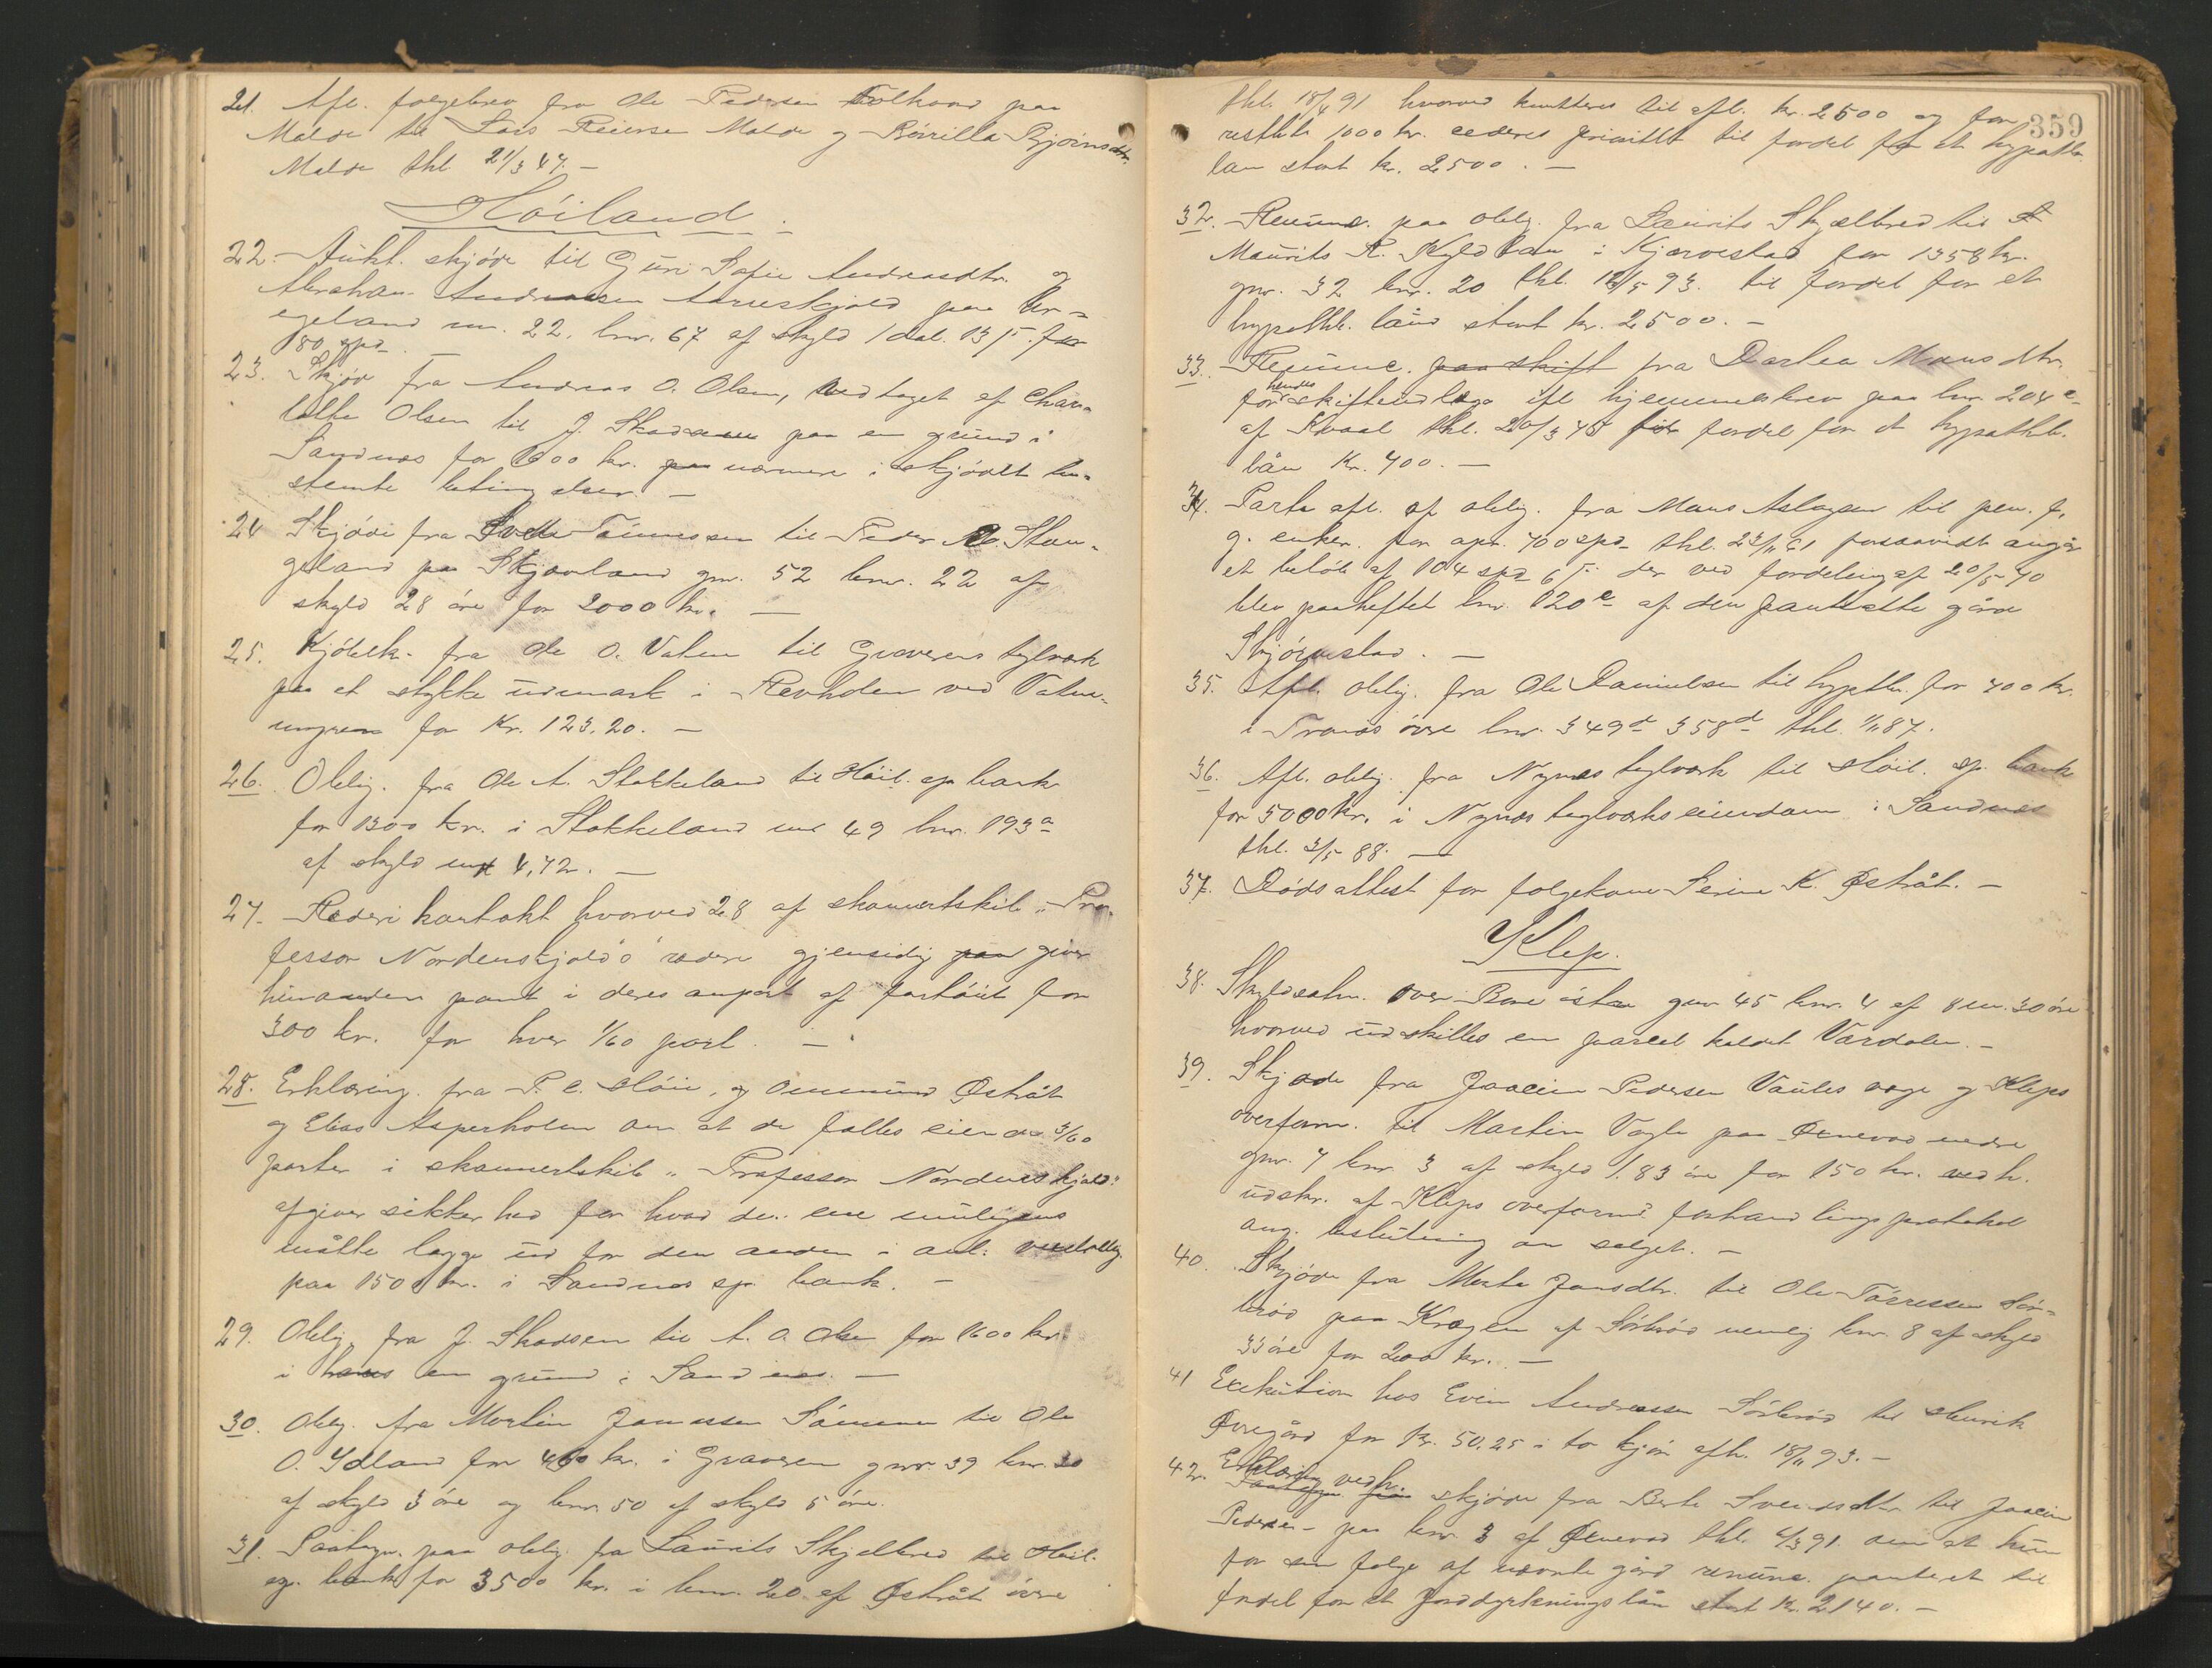 21. Afl. folgebrev fra Ole Pedersen paa
Malde til Lars Reierse Malde og Børrilla Bjørnsdtr.
Malde thl 21/3 47. –
Høiland.
22. Aukt. skjøde til Guri Sofie Andreasdtr. og
Abraham Andreassen Anneskjold paa
egeland mn. 22. bnr. 67 af skyld 1 dal. 13 ß. for
180 spd.
23. Skjøde fra Andreas O. Olsen, vedtaget af Char-
lotte Olsen til J. Skadsem paa en grund i
Sandnæs for 1600 kr. paa nærmere i skjødet be-
stemte betingelser. –
24 Skjøde fra Tønnessen til Peder Stan-
geland paa Skjævland gnr. 52 bnr. 22 af
skyld 28 øre for 2000 kr. –
25. Kjøbek. fra Ole O. Vatne til Graverens teglværk
paa et stykke udmark i Revholen ved Vatne-
for Kr. 123.20. –
26. Oblig. fra Ole A. Stokkeland til Høil. sp. bank
for 1300 kr. i Stokkeland mn 49 bnr. 193 a
af skyld mrk 4,72. –
27. Rederi kontrakt hvorved 28 af skonnertskib "Pro-
fessor Nordenskjold's" redere gjensidig paa giver
hinanden pant i deres anpart af fartøiet for
300 kr. for hver 1/60 part. –
28. Erklæring fra P. C. Høie, og Ommund Østråt
og Elias Asperholm om at de fælles eiende 3/60
parter i skonnertskib "Professor Nordenskjold"
afgiver sikkerhed for hvad den ene muligens
måtte lægge ud for den anden i anl:
paa 1500 kr. i Sandnes sp. bank. –
29. Oblig. fra J. Skadsem til A. O. Olsen for 1600 kr.
i hans en grund i Sandnes. –
30. Oblig. fra Martin Jonassen Sømme til Ole
O. Ydland for 460 kr. i Graveren gnr. 39 bnr. 30
af skyld 3 øre og bnr. 50 af skyld 5 øre.
31. Paategn. paa oblig. fra Laurits Skjelbred til Høil.
sp. bank for 3500 kr. i bnr. 20 af Østråt øvre
359
thl. 18/4 91 hvorved kvitteres til afl. kr. 2500 og for
restbl. 1000 kr. cederes prioritet til fordel for et hypoth.
lån stort kr. 2500. –
32. Renunc. paa oblig. fra Laurits Skjælbred til
Maurits R. Kyldland i Kjærrestad for 1358 kr.
gnr. 32 bnr. 20 thl. 16/5 93. til fordel for et
hypothk. lån stort kr. 2500. –
33. Renunc. paa skift fra Dorthea Monsdtr.
for hendes skifteudlæg ifl hjemmelsbrev paa bnr 204 c
af Kvaal thl. 20/3 45 for fordel for et hypothk.
lån Kr. 400. –
34. Partn afl. af oblig. fra Mons Aslagsen til pen. f.
g. enker. for opr. 700 spd thl. 23/11 61 forsaavidt angår
et beløb af 104 spd 6 ß der ved fordeling af 20/5 70
blev paaheftet bnr. 120 c af den pantsatte gård
Skjørestad. –
35. Afl. oblig. fra Ole Danielsen til hypthk. for 400 kr.
i Tronds øvre bnr. 349 d 358 d thl. 1/11 87.
36. Afl. oblig. fra Nynæs teglværk til Høil. sp. bank
for 5000 kr. i Nynæs teglværks eiendom i Sandnes
thl. 3/5 88. –
37. Dødsattest for folgekone Serine K. Østråt. –
Klep.
38. Skyldsahn. over Bore østre gnr 45 bnr. 4 af 8 m. 30 øre
hvorved udskilles en parcel kaldet Vardalen. –
39. Skjøde fra Joacim Pedersen Vaules værge og Kleps
overform. til Martin Vagle paa Øxnevad nedre
gnr. 7 bnr. 3 af skyld 1.83 øre for 150 kr. vedh.
udskr. af Kleps overformd. forhandlingsprotokol
ang. beslutning om salget. –
40. Skjøde fra Marta Jonsdtr. til Ole Tørressen Sør-
brød paa Kragen af Sørbrød nemlig bnr. 8 af skyld
33 øre for 200 kr. –
41 Exekution hos Even Andreassen Sørbrød til Henrik
Øvregård for Kr. 50.25 i to kjør afh. 18/11 93. –
42. Erklæring vedh. Paategn paa skjøde fra Berte Svendsdtr til Joacim
Pedersen – paa bnr. 3 af Øxnevad thl. 4/3 91. om at hun
for sin folge af nævnte gård renunc. panteret til
fordel for et Jorddyrkningslån stort Kr. 2140. –